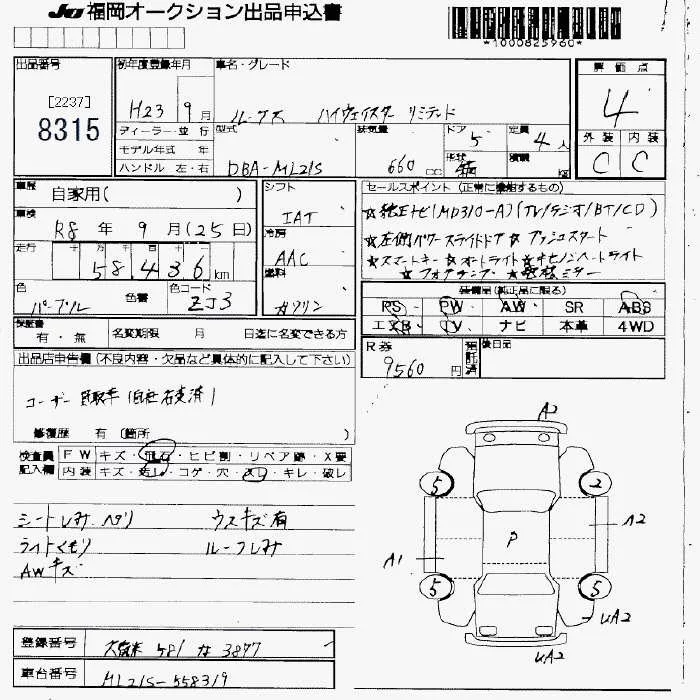 JU 福岡オークション出品申込書
*1000825960*
出品番号
[2237]
8315
初年度登録年月
H23 9月
車名・グレード
ルークス ハイウェイスター リミテッド
評価点
4
外装 内装
C C
ディーラー・並行
モデル年式 年
ハンドル 左・右
型式
DBA-ML21S
排気量
660 cc
ドア
5
形状
定員
4人
積載
kg
車歴
自家用( )
車検
R8 年 9 月 (25 日)
走行
58,436 km
色
パープル
色替
色コード
ZJ3
シフト
IAT
冷房
AAC
燃料
ガソリン
セールスポイント (正常に機能するもの)
☆純正ナビ(MD310-A)(TV/ラジオ/BT/CD)
☆左側パワースライドドア☆プッシュスタート
☆スマートキー☆オートライト☆キセノンヘッドライト
☆フォグランプ
装備品(純正品に限る)
PS PW AW SR ABS
エアB TV ナビ 本革 4WD
R券
9560円
預託済
後日品
保証書
有・無
名変期限 月 日迄に名変できる方
出品店申告欄 (不良内容・欠品など具体的に記入して下さい)
ユーザー買取車
修復歴 有 (箇所 )
検査員
記入欄
FW キズ・飛石・ヒビ割・リペア跡・X要
内装 キズ・汚れ・コゲ・穴・スレ・キレ・破レ
シートしみ、ヘタリ ウスキズ有
ライトくもり ルーフしみ
AWキズ
A2
5
2
A2
P
A1
5
5
UA2
UA2
登録番号
久留米 581 な 3877
車台番号
ML21S-558319